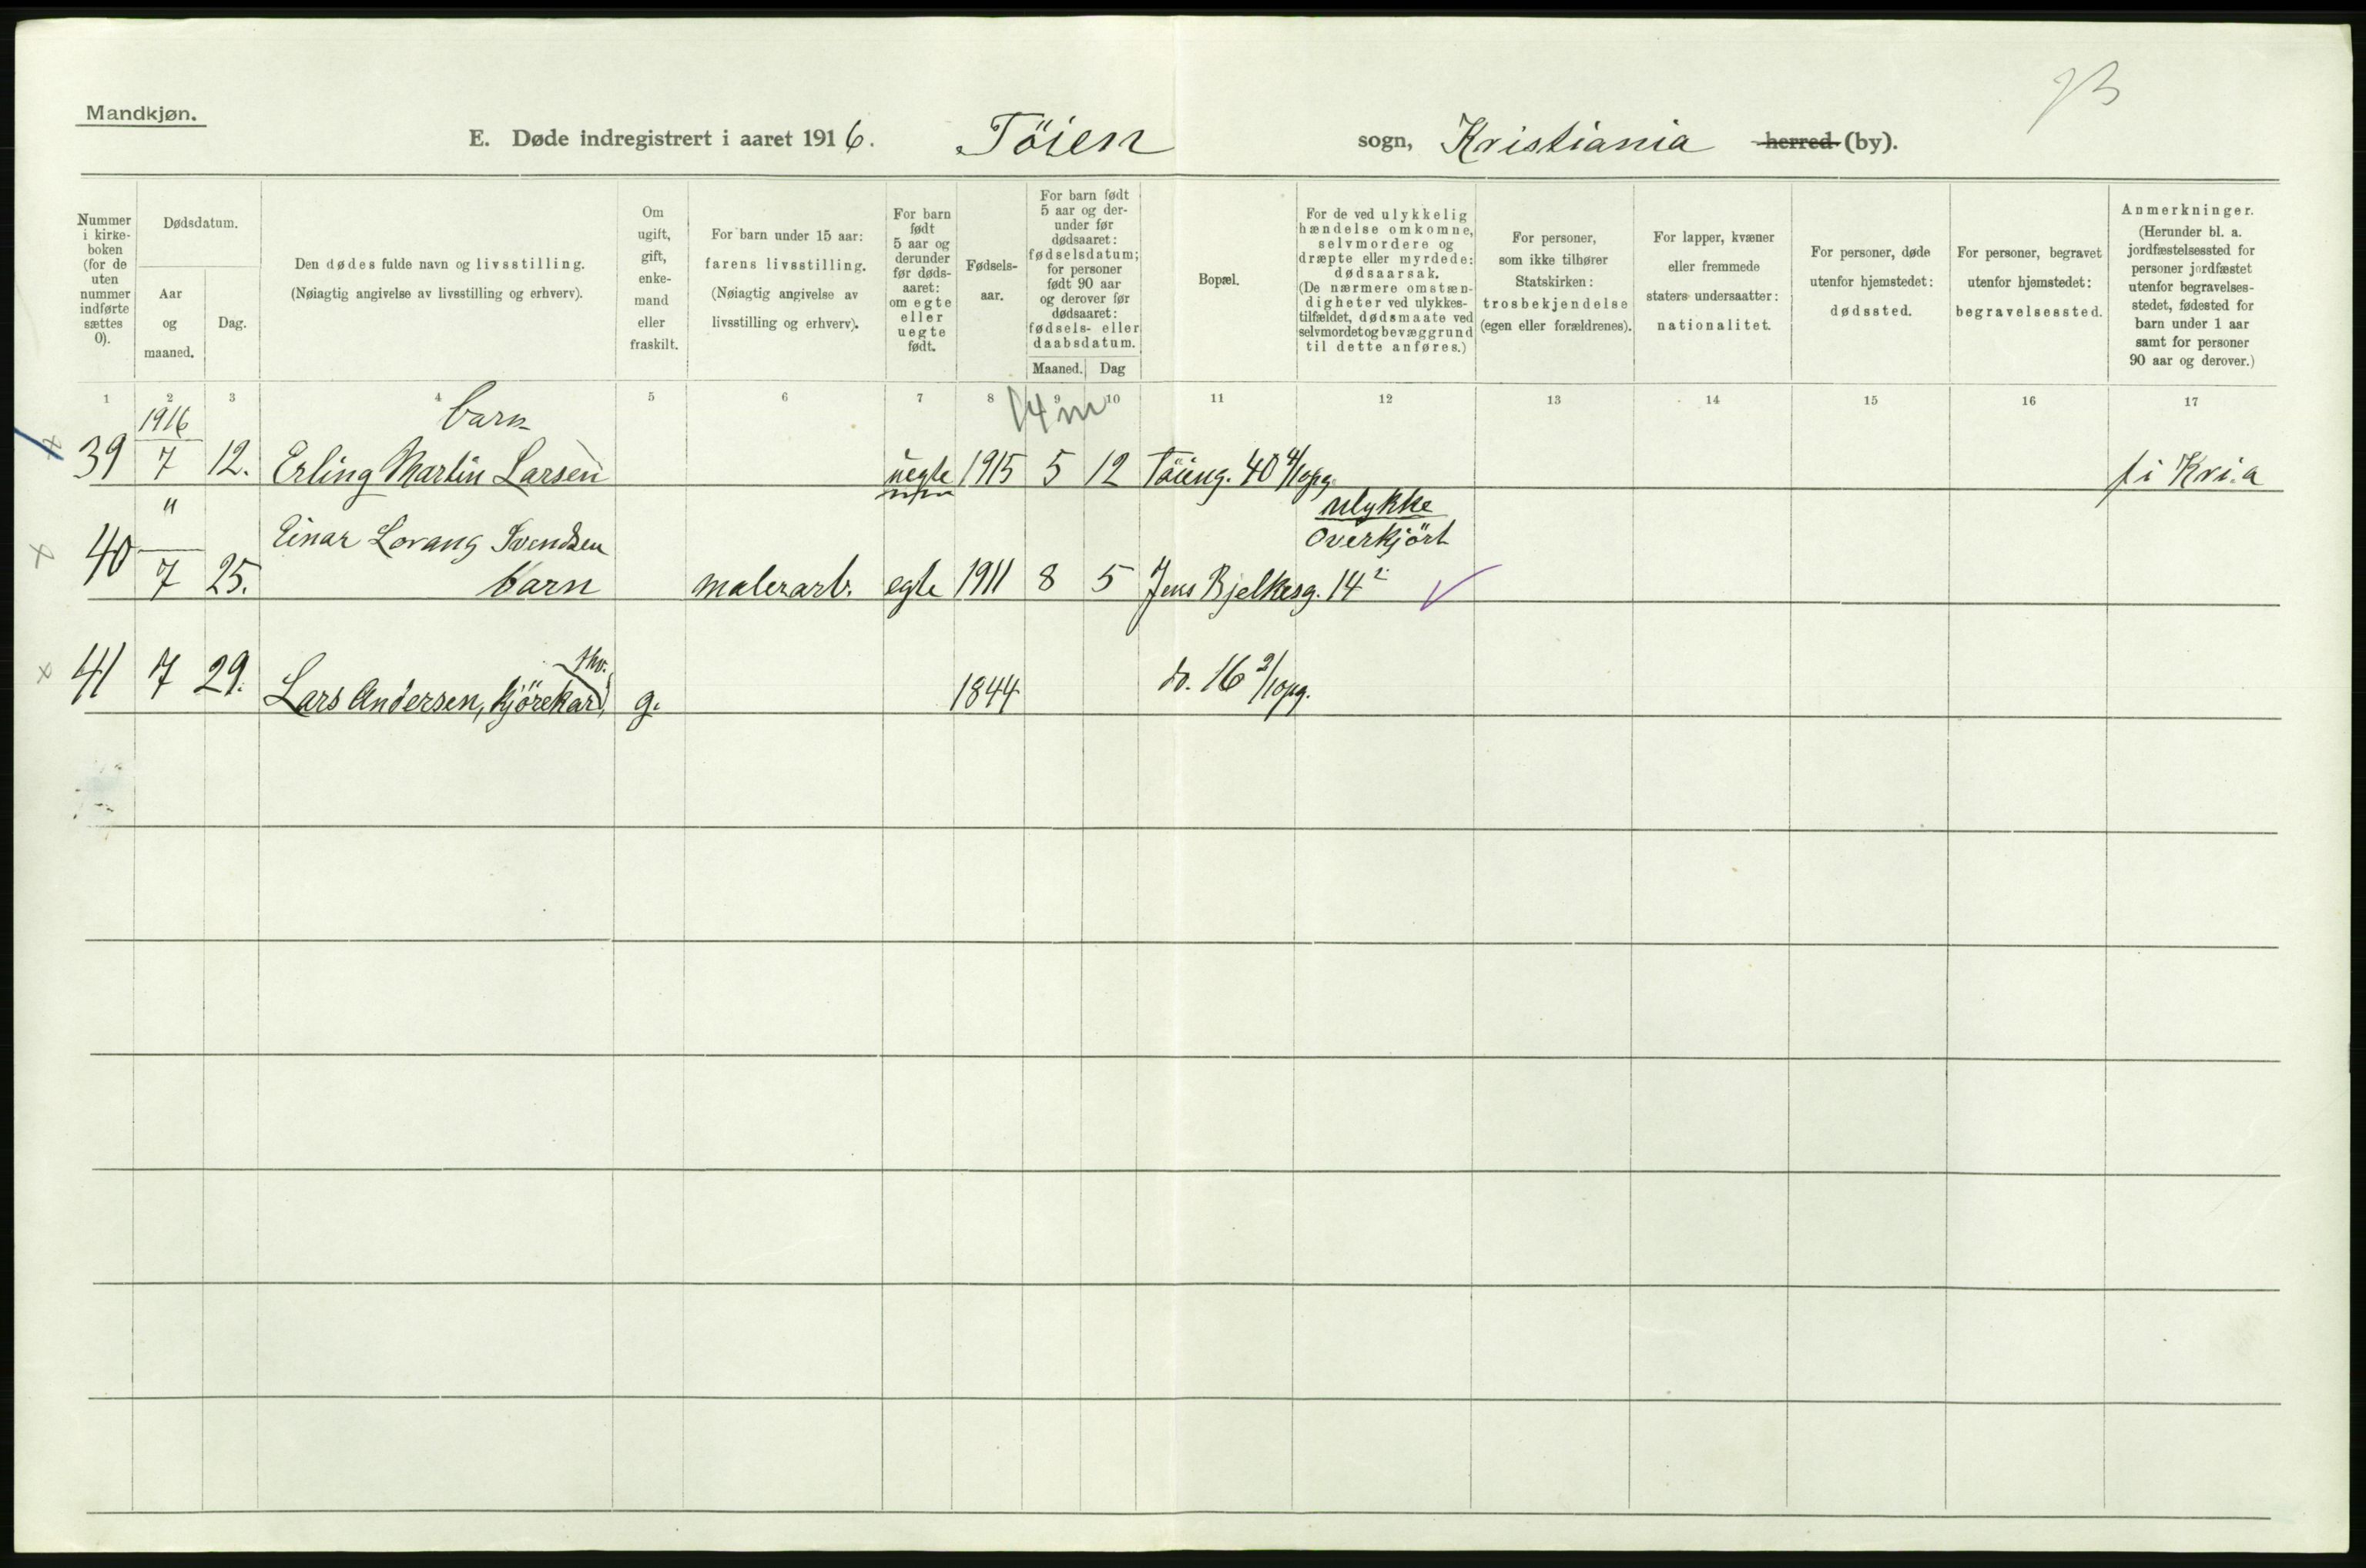 Mandkjøn.
E. Døde indregistrert i aaret 1916. Töien sogn, Kristiania herred (by).
Nummer i kirke-boken (for de uten nummer indførte sættes 0).
Dødsdatum.
Aar og maaned.
Dag.
Den dødes fulde navn og livsstilling.
(Nøiagtig angivelse av livsstilling og erhverv).
Om ugift, gift, enke-mand eller fraskilt.
For barn under 15 aar: farens livsstilling.
(Nøiagtig angivelse av livsstilling og erhverv).
For barn født 5 aar og derunder før døds-aaret: om egte eller uegte født.
Fødsels-aar.
For barn født 5 aar og der-under før dødsaaret: fødselsdatum; for personer født 90 aar og derover før dødsaaret: fødsels- eller daabsdatum.
Maaned. Dag
Bopæl.
For de ved ulykkelig hændelse omkomne, selvmordere og dræpte eller myrdede: dødsaarsak.
(De nærmere omstæn-digheter ved ulykkes-tilfældet, dødsmaate ved selvmordet og bevæggrund til dette anføres.)
For personer, som ikke tilhører Statskirken: trosbekjendelse (egen eller forældrenes).
For lapper, kvæner eller fremmede staters undersaatter: nationalitet.
For personer, døde utenfor hjemstedet: dødssted.
For personer, begravet utenfor hjemstedet: begravelsessted.
Anmerkninger.
(Herunder bl. a. jordfæstelsessted for personer jordfæstet utenfor begravelses-stedet, fødested for barn under 1 aar samt for personer 90 aar og derover.)
1 2 3 4 5 6 7 8 9 10 11 12 13 14 15 16 17
1916 barn 14 m
39 7 12. Erling Martin Larsen uegte 1915 5 12 Töieng. 40 4/opg. i Kri.a
" ulykke
40 Einar Lovang Svendsen Overkjört
7 25. barn malerarb. egte 1911 8 5 Jens Bjelkesg. 14 2
41 7 29. Lars Andersen, kjörekarl, g. 1844 do. 16 2/opg.